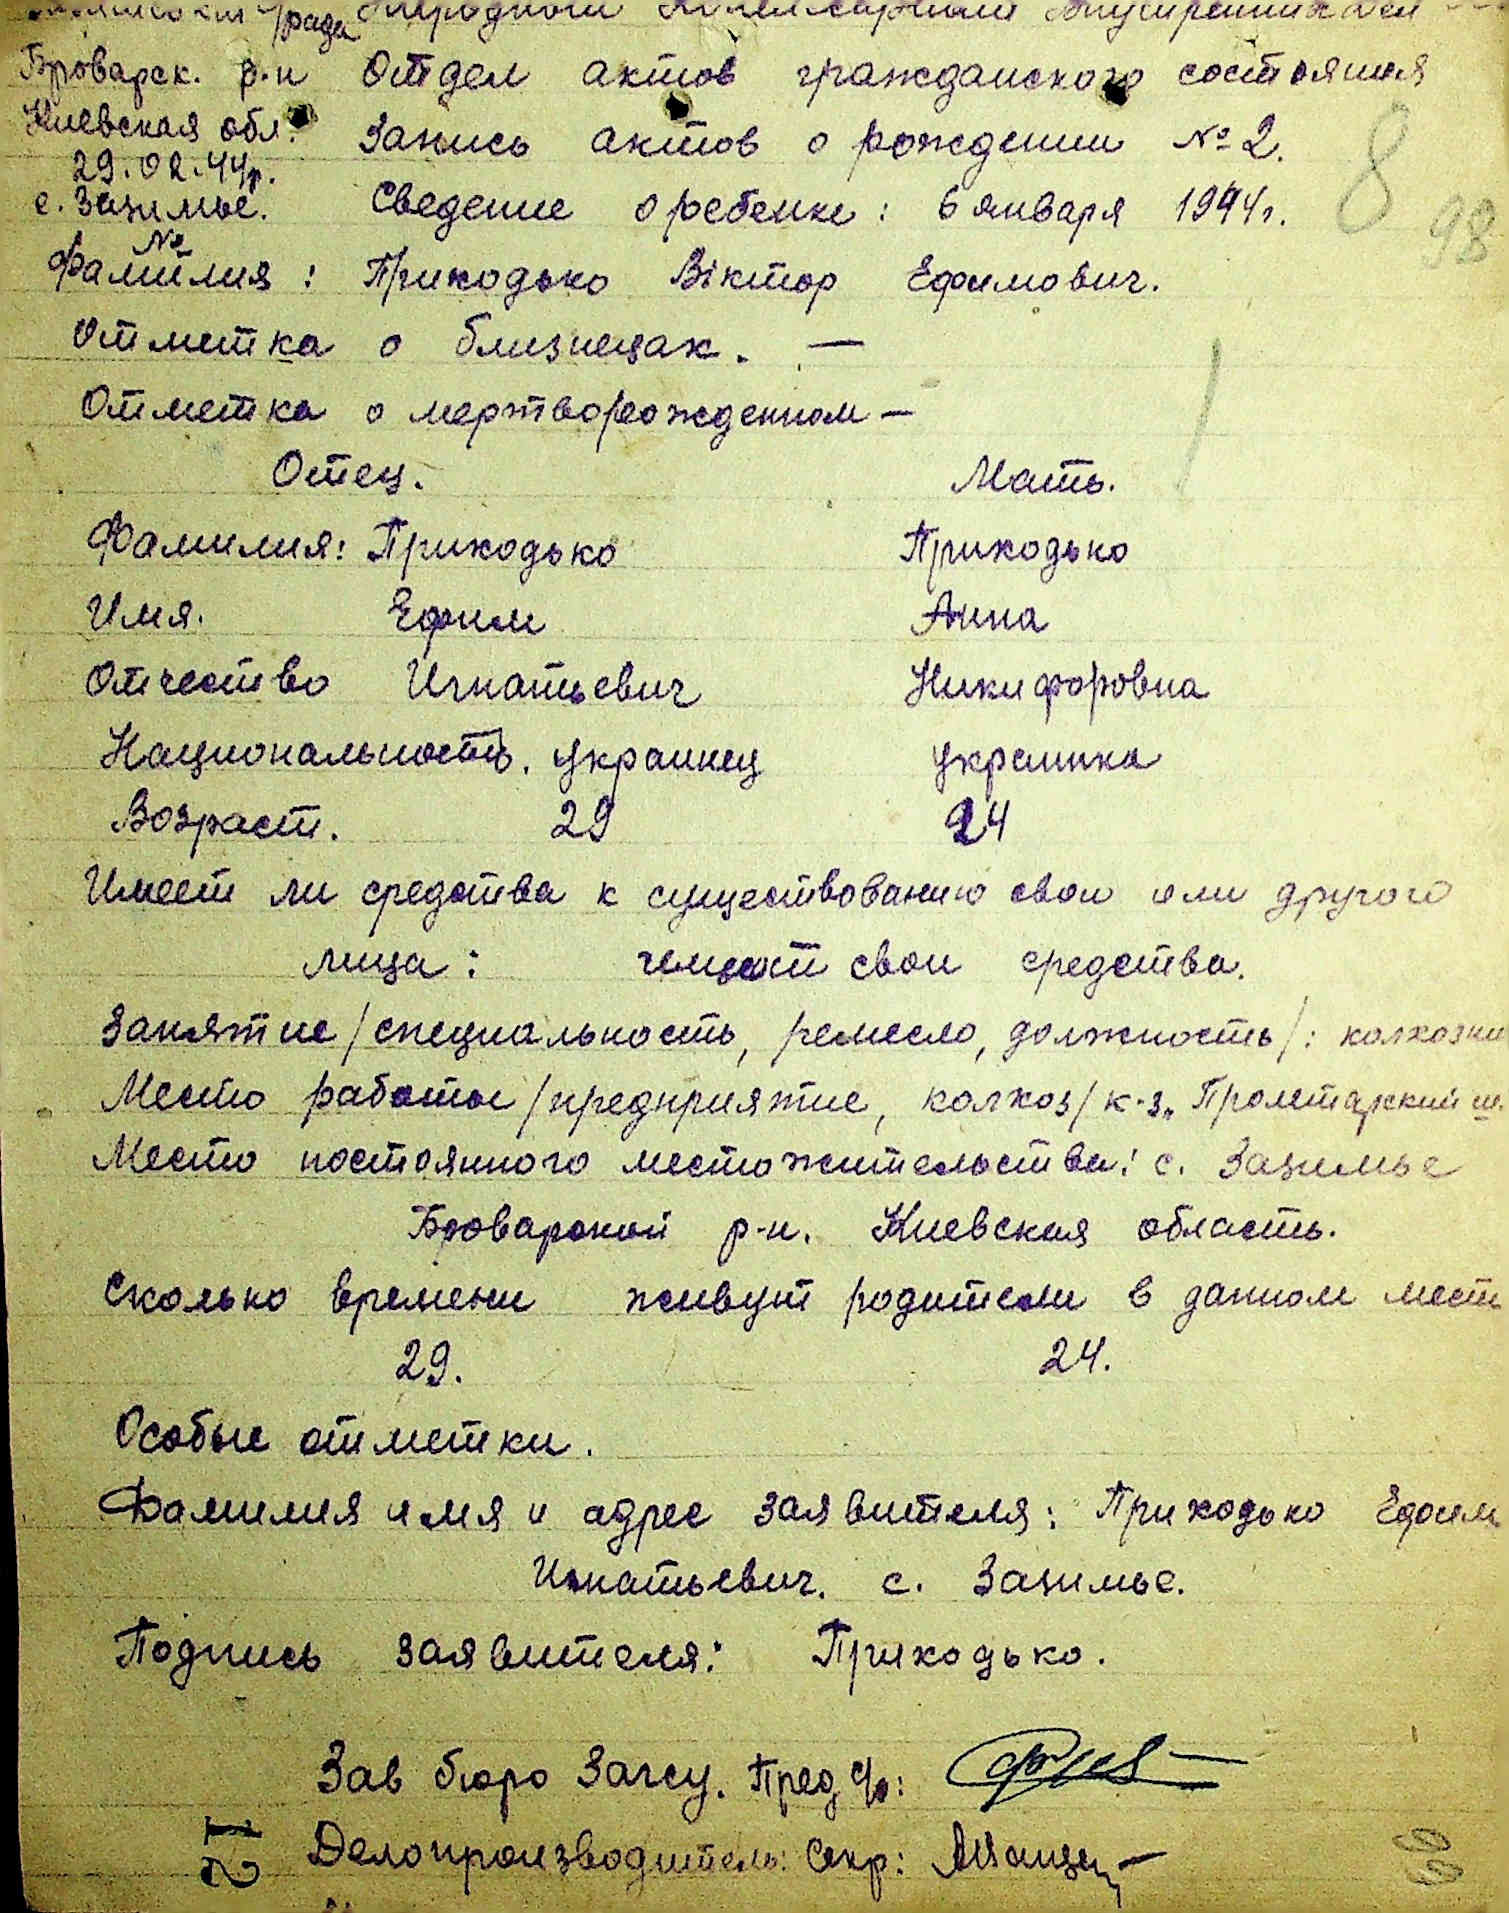 рада Народный Комиссариат Внутренних Дел
Броварск. р-н Отдел актов гражданского состояния
Киевская обл. Запись актов о рождении № 2.
29.02.44г.
с. Зазимье. Сведение о ребенке: 6 января 1944г.
№
Фамилия: Приходько Віктор Ефимович.
Отметка о близнецах. —
Отметка о мертворожденном —
Отец. Мать.
Фамилия: Приходько Приходько
Имя. Ефим Анна
Отчество Игнатьевич Никифоровна
Национальность. украинец украинка
Возраст. 29 24
Имеет ли средства к существованию свои или другого
лица: имеют свои средства.
Занятие /специальность, ремесло, должность/: колхозни
Место работы /предприятие, колхоз/ к-з „Пролетарский
Место постоянного местожительства: с. Зазимье
Броварской р-н. Киевская область.
Сколько времени живут родители в данном мест
29. 24.
Особые отметки.
Фамилия имя и адрес заявителя: Приходько Ефим
Игнатьевич. с. Зазимье.
Подпись заявителя: Приходько.
Зав бюро Загсу. Пред с/р:
Делопроизводитель: Секр:
8
98
12